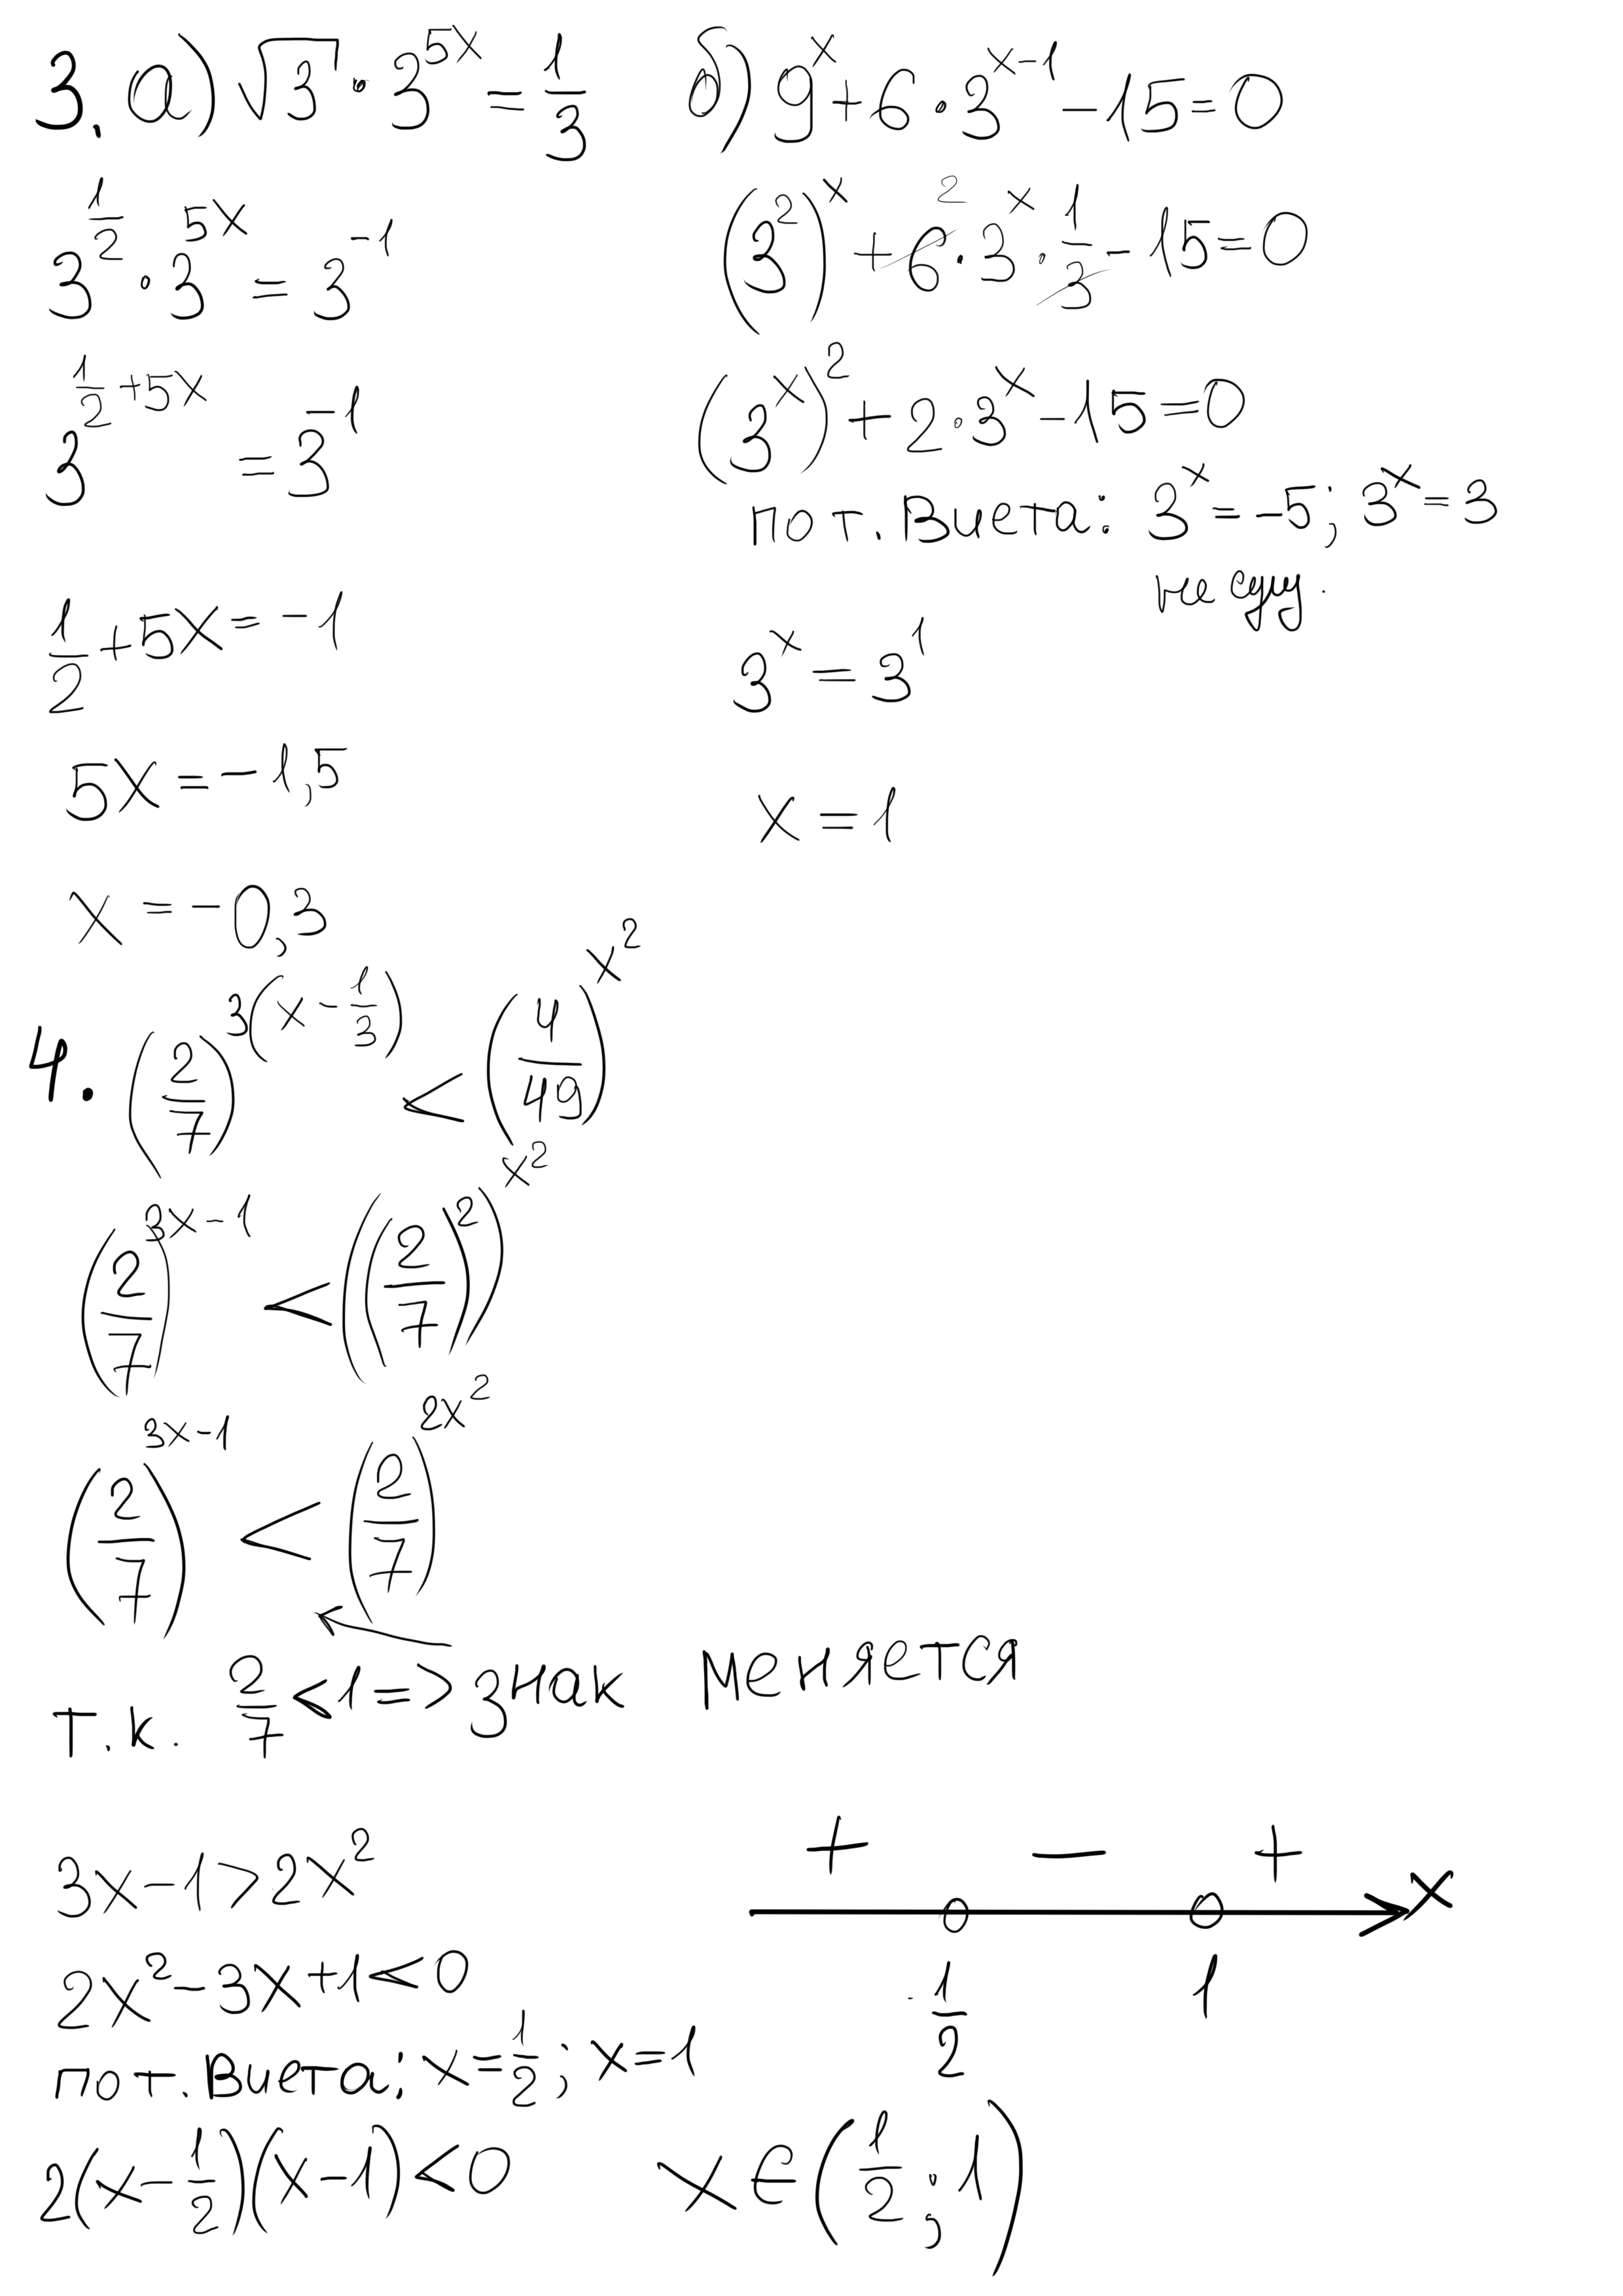 3. а) √3 · 3^(5x) = 1/3
3^(1/2) · 3^(5x) = 3^(-1)
3^(1/2 + 5x) = 3^(-1)
1/2 + 5x = -1
5x = -1,5
x = -0,3
б) 9^x + 6 · 3^(x-1) - 15 = 0
(3^2)^x + 6 · 3^x · 1/3 - 15 = 0
2
(3^x)^2 + 2 · 3^x - 15 = 0
по т. Виета: 3^x = -5; 3^x = 3
не сущ.
3^x = 3^1
x = 1
4. (2/7)^(3(x - 1/3)) < (4/49)^(x^2)
(2/7)^(3x-1) < ((2/7)^2)^(x^2)
(2/7)^(3x-1) < (2/7)^(2x^2)
т.к. 2/7 < 1 => знак меняется
3x - 1 > 2x^2
2x^2 - 3x + 1 < 0
по т. Виета: x = 1/2; x = 1
2(x - 1/2)(x - 1) < 0
+ − + x
1/2 1
x ∈ (1/2; 1)